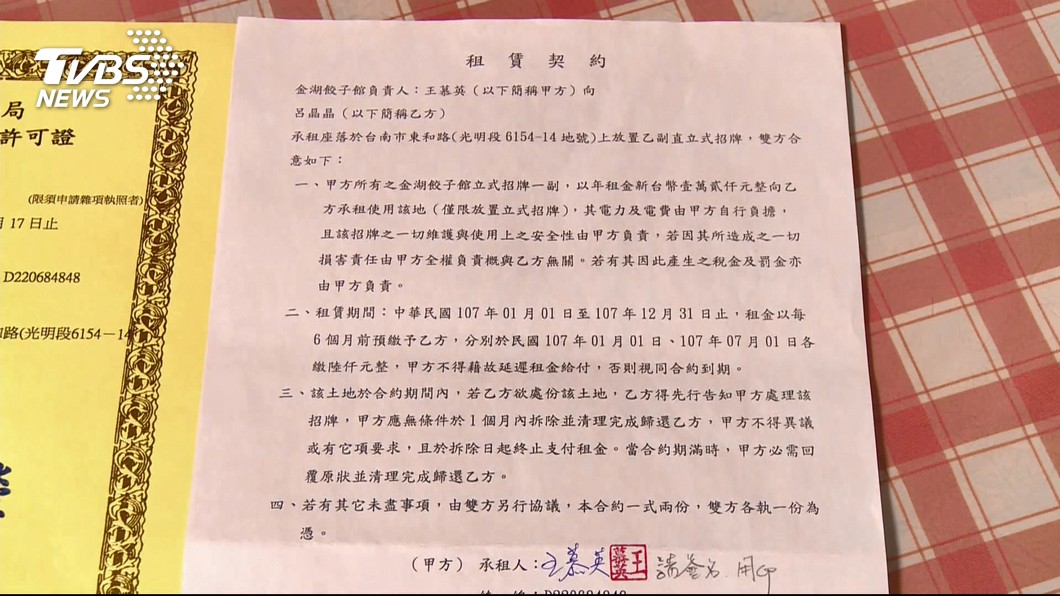 TVBS
NEWS
局
許可證
(限須申請雜項執照者)
月 17 日止
D220684848
路(光明段6154-14
租賃契約
金湖餃子館負責人：王慕英（以下簡稱甲方）向
呂晶晶（以下簡稱乙方）
承租座落於台南市東和路(光明段 6154-14 地號)上放置乙副直立式招牌，雙方合
意如下：
一、甲方所有之金湖餃子館立式招牌一副，以年租金新台幣壹萬貳仟元整向乙
方承租使用該地（僅限放置立式招牌），其電力及電費由甲方自行負擔，
且該招牌之一切維護與使用上之安全性由甲方負責，若因其所造成之一切
損害責任由甲方全權負責概與乙方無關。若有其因此產生之稅金及罰金亦
由甲方負責。
二、租賃期間：中華民國 107 年 01 月 01 日至 107 年 12 月 31 日止，租金以每
6 個月前預繳予乙方，分別於民國 107 年 01 月 01 日、107 年 07 月 01 日各
繳陸仟元整，甲方不得藉故延遲租金給付，否則視同合約到期。
三、該土地於合約期間內，若乙方欲處份該土地，乙方得先行告知甲方處理該
招牌，甲方應無條件於 1 個月內拆除並清理完成歸還乙方，甲方不得異議
或有它項要求，且於拆除日起終止支付租金。當合約期滿時，甲方必需回
覆原狀並清理完成歸還乙方。
四、若有其它未盡事項，由雙方另行協議，本合約一式兩份，雙方各執一份為
憑。
（甲方） 承租人：王慕英 王慕英 請簽名.用印
D220684848